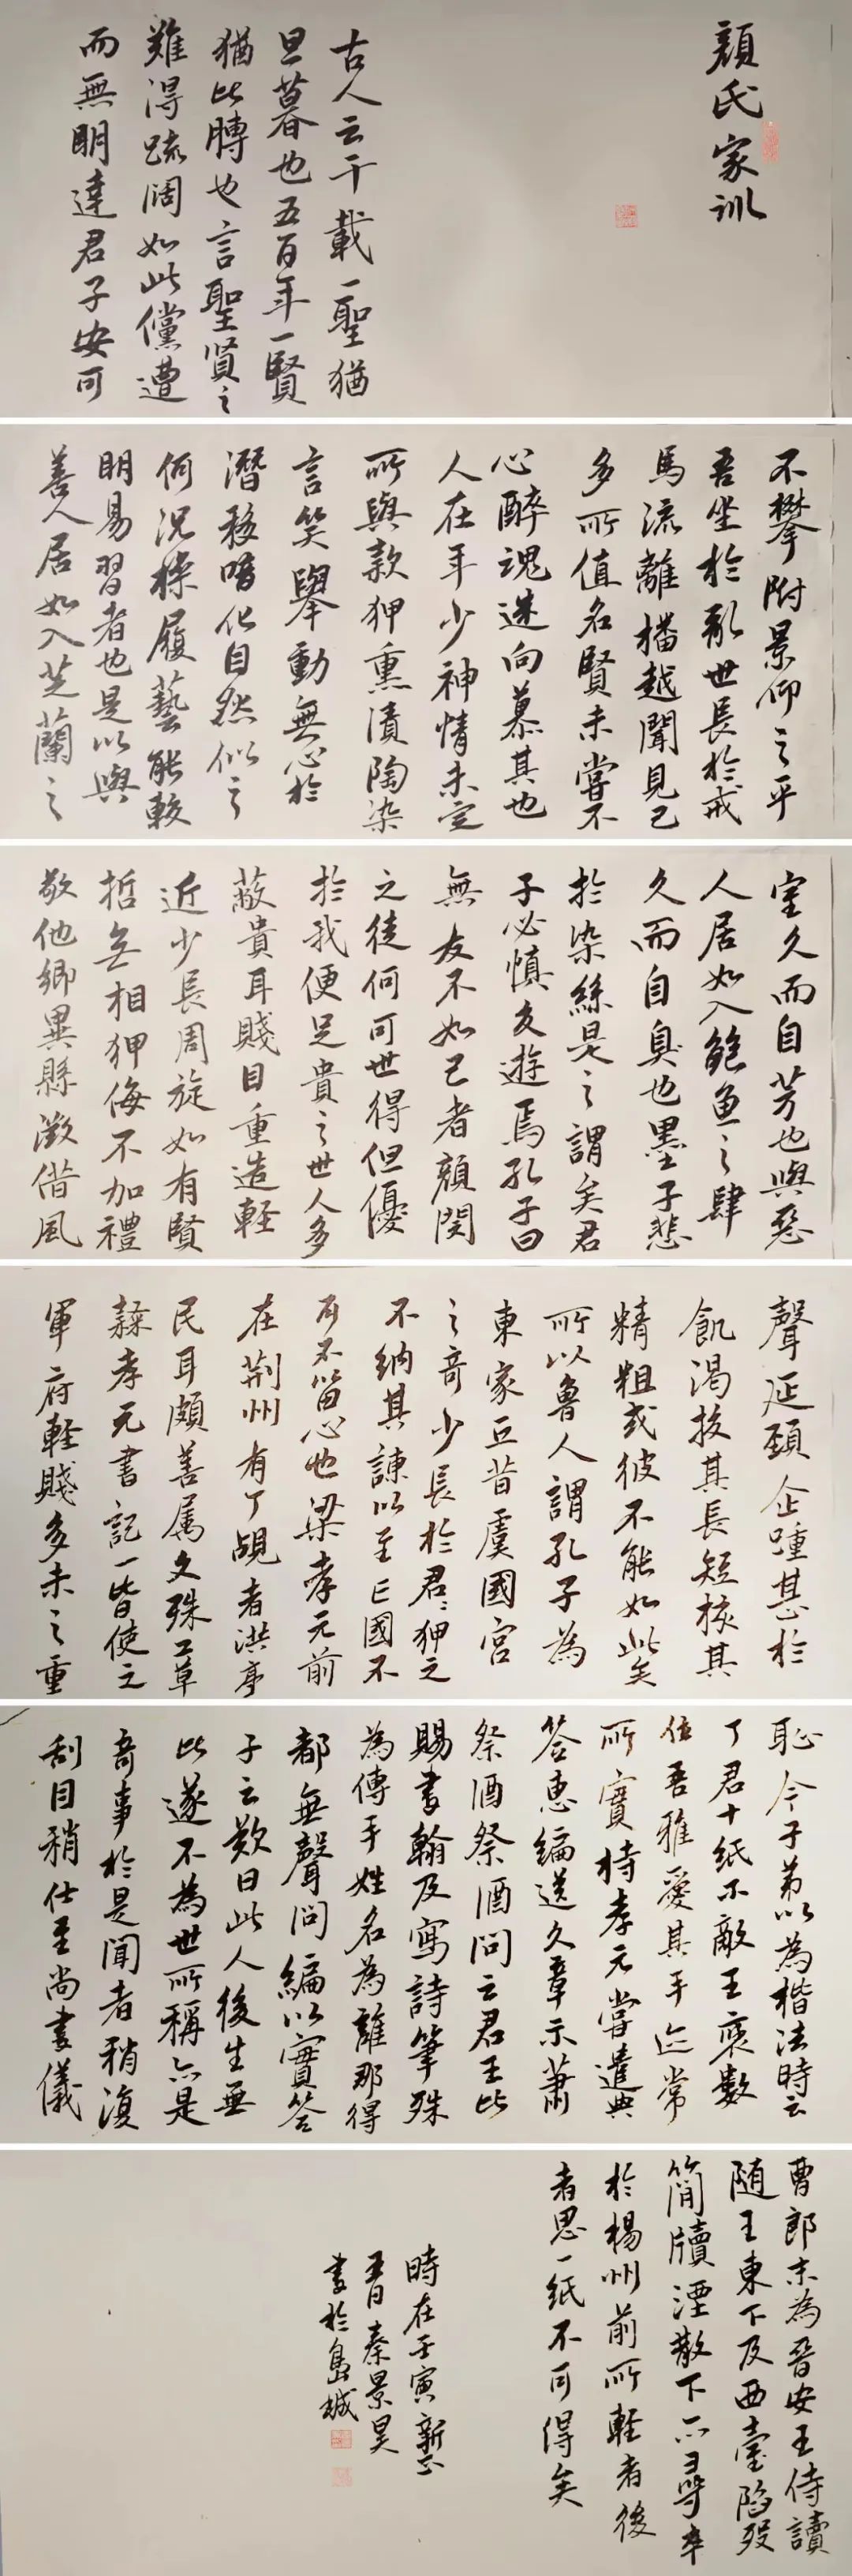 顏氏家訓
古人云千載一聖猶
旦暮也五百年一賢
猶比髆也言聖賢之
難得疏闊如此儻遭
而無明達君子安可
不攀附景仰之乎
吾生於亂世長於戎
馬流離播越聞見已
多所值名賢未嘗不
心醉魂迷向慕其也
人在年少神情未定
所與款狎熏漬陶染
言笑舉動無心於
潛移暗化自然似之
何況操履藝能較
明易習者也是以與
善人居如入芝蘭之
室久而自芳也與惡
人居如入鮑魚之肆
久而自臭也墨子悲
於染絲是之謂矣君
子必慎交遊焉孔子曰
無友不如己者顏閔
之徒何可世得但優
於我便足貴之世人多
蔽貴耳賤目重遙輕
近少長周旋如有賢
哲每相狎侮不加禮
敬他鄉異縣微借風
聲延頸企踵甚於
飢渴校其長短核其
精粗或彼不能如此矣
所以魯人謂孔子為
東家丘昔虞國宮
之奇少長於君君狎之
不納其諫以至亡國不
可不留心也梁孝元前
在荆州有丁覘者洪亭
民耳頗善属文殊工草
隸孝元書記一皆使之
軍府輕賤多未之重
恥令子弟以為楷法時云
丁君十紙不敵王褒數
位吾雅愛其手迹常
所寶持孝元嘗遣典
答惠編送文章示蕭
祭酒祭酒問云君王比
賜書翰及寫詩筆殊
為傳手姓名為誰那得
都無聲問編以實答
子云歎曰此人後生無
比遂不為世所稱亦是
奇事於是聞者稍復
刮目稍仕至尚書儀
曹郎末為晉安王侍讀
随王東下及西臺陷歿
簡牘湮散丁亦尋卒
於楊州前所輕者後
者思一紙不可得矣
時在壬寅新正
五日秦景昊
書於島城